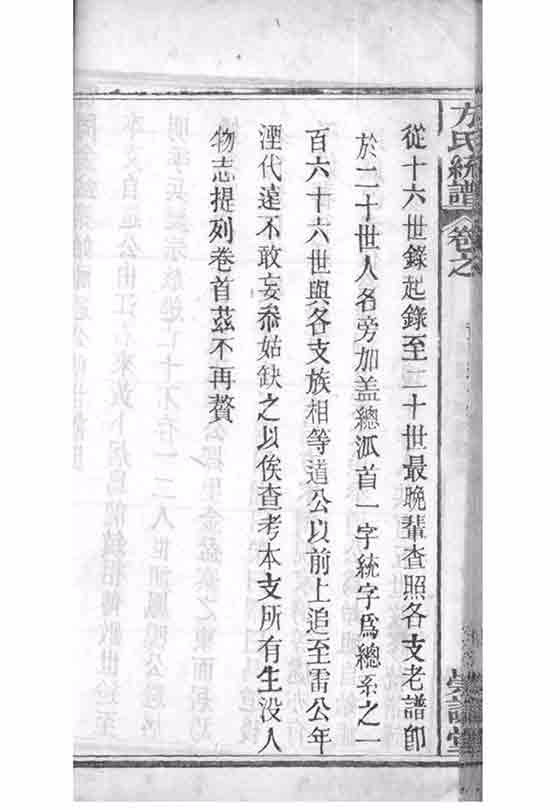 方氏統譜 卷之
從十六世錄起錄至二十世最晚輩查照各支老譜即
於二十世人名旁加盖總派首一字統字爲總系之一
百六十六世與各支族相等道公以前上追至雷公年
湮代遠不敢妄添姑缺之以俟查考本支所有生没人
物志提列卷首茲不再贅